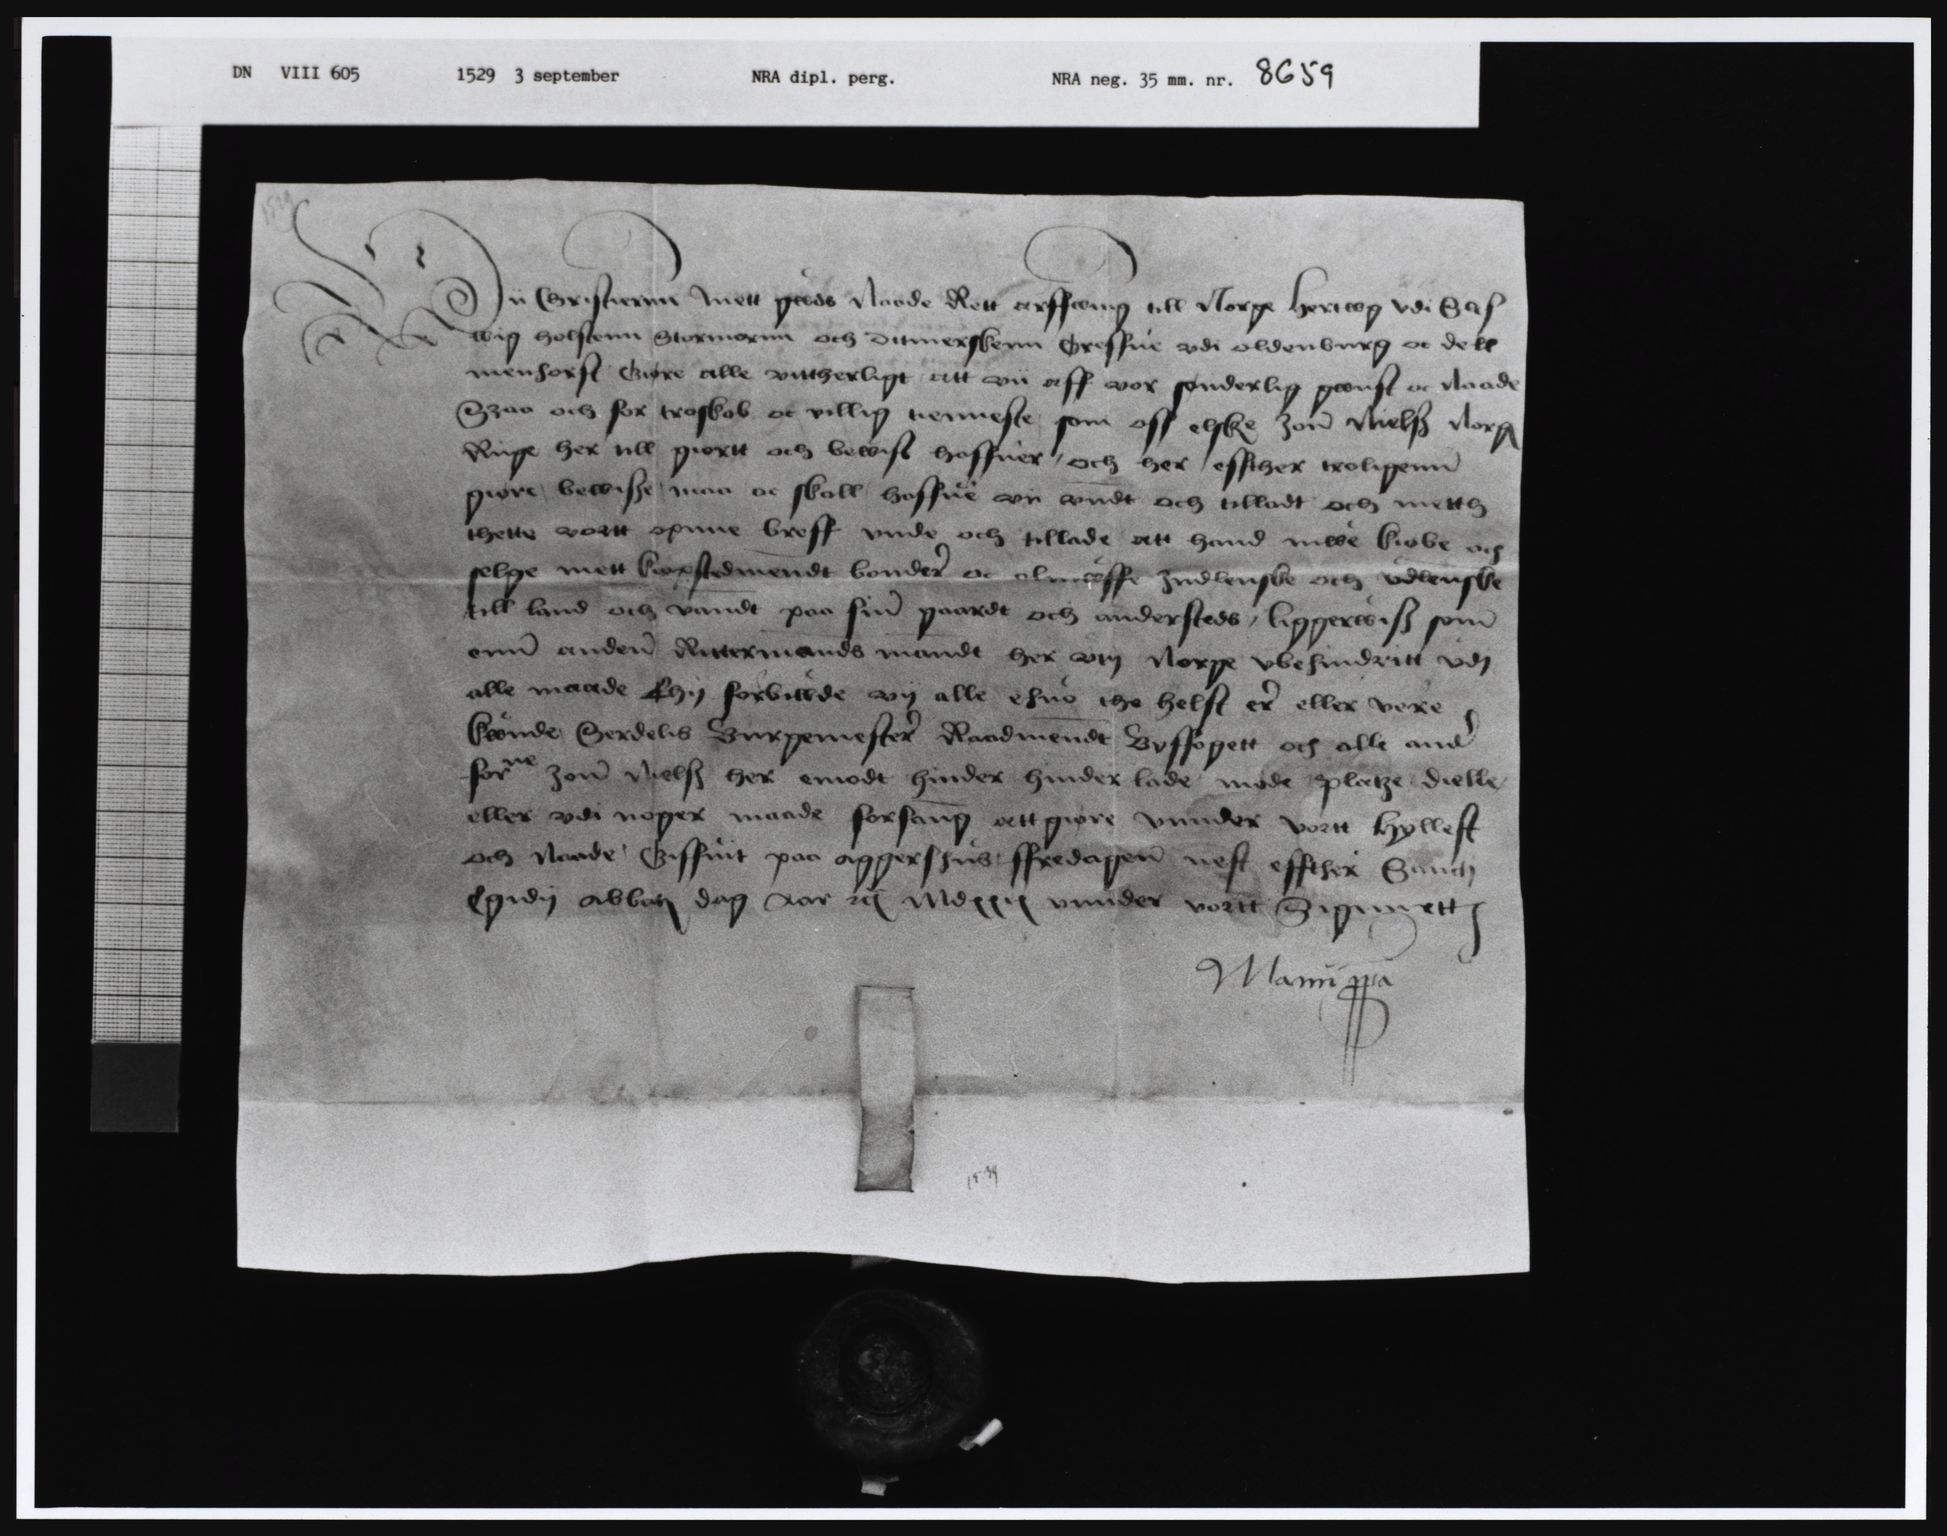 DN VIII 605 1529 3 september NRA dipl. perg. NRA neg. 35 mm. nr. 8659
Wii Christiernn mett gwds Naade Rett arffwing till Norge hertwg vdi Sles
wig holstenn Stormarnn och Ditmerskenn Greffue vdi oldenburg oc dell
menhorst Giøre alle vittherligt att vii aff vor synderlig gwnst oc Naade
Szaa och for troskob oc villig tienneste som oss elske Jon Nielss Norg
Rige her till giortt och bewist haffuer, och her effther troligenn
giøre bewisze maa oc skall haffue vii vndt och tilladt och metth
thette vortt opnne breff vnde och tillade att hand mwe kiøbe och
selge mett kiøpstedmendt bønder oc almwffe Jndlenske och vdlenske
till land och vandt paa sin gaardt och andersteds, liggerwiss som
enn anden Rittermands mandt her vtij Norge vbehindritt vdj
alle maade Thij forbiwde vij alle ehuo the helst er eller vere
kwnde Serdelis Burgemester Raadmendt Byffogett och alle andr
forne Jon Nielss her emodt hinder hinder lade møde platze dielle
eller vdi noger maade forfang att giøre vnnder vortt hyllest
och Naade Giffuit paa aggershus ffredagen nest effther Sancti
Egidij abbatis dag aar etc MDxxix vnnder vortt Signnett
Manu ppria